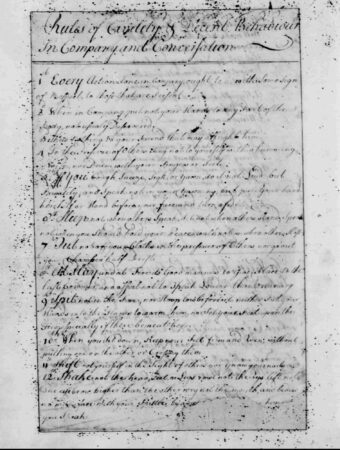 Rules of Civility & Decent Behaviour
In Company and Conversation
1st Every Action done in Company ought to with Some Sign
of Respect, to those that are Present
2d When in Company, put not your Hands to any Part of the
Body, not usually Discovered
3d Nothing to your Friend that may him
4 In the Presence of Others Sing not to yourself with a humming
Noise, nor Drum with your Fingers or Feet
5 If You Cough, Sneeze, Sigh, or Yawn, do it not Loud but
Privately; and Speak not in your Yawning, but put Your hand
6th Sleep not when others Speak, Sit not when others stand, Speak
not when you Should hold your Peace, walk not when others Stop
7 not your Cloths in the presence of Others, nor go out
your Chamber half Drest
8 At Play and at Fire its Good manners to Give Place to the
last Comer, and affect not to Speak Louder than Ordinary
9 Spit not in the Fire, nor Stoop low before it neither Put your
Hands into the Flames to warm them, nor Set your Feet upon the
Fire especially if there be meat before it
10th When you Sit down, Keep your Feet firm and Even, without
putting one on the other or Crossing them
11th Shift not yourself in the Sight of others nor Gnaw your nails
12th Shake not the head, Feet, or Legs rowl not the Eyes lift not
one eyebrow higher than the other wry not the mouth, and bedew
no mans face with your Spittle, by
you Speak